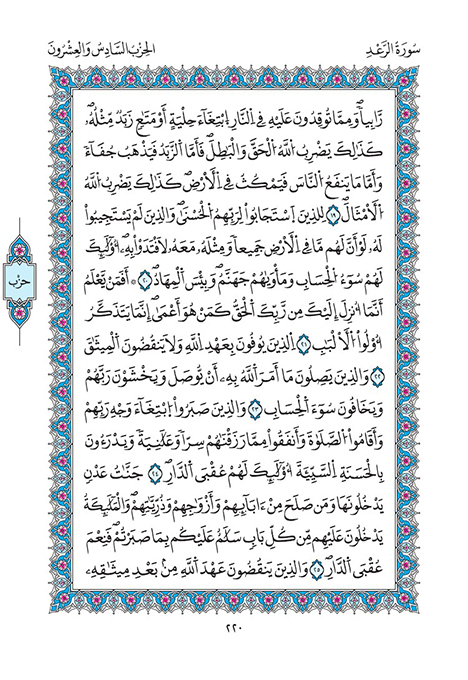 سُورَةُ الرَّعْدِ
الحِزْبُ السَّادِسُ وَالعِشْرُونَ
رَّابِياٗۖ وَمِمَّا تُوقِدُونَ عَلَيْهِ فِے اِ۬لنَّارِ اِ۪بْتِغَآءَ حِلْيَةٍ اَوْ مَتَٰعٖ زَبَدٞ مِّثْلُهُۥۖ
كَذَٰلِكَ يَضْرِبُ اُ۬للَّهُ اُ۬لْحَقَّ وَالْبَٰطِلَۖ فَأَمَّا اَ۬لزَّبَدُ فَيَذْهَبُ جُفَآءٗ
وَأَمَّا مَا يَنفَعُ اُ۬لنَّاسَ فَيَمْكُثُ فِے اِ۬لْأَرْضِۖ كَذَٰلِكَ يَضْرِبُ اُ۬للَّهُ
اُ۬لْأَمْثَالَۖ ١٩ لِلذِينَ اَ۪سْتَجَابُواْ لِرَبِّهِمُ اُ۬لْحُسْنَيٰۖ وَالذِينَ لَمْ يَسْتَجِيبُواْ
لَهُۥ لَوَ اَنَّ لَهُم مَّا فِے اِ۬لْأَرْضِ جَمِيعاٗ وَمِثْلَهُۥ مَعَهُۥ لَافْتَدَوْاْ بِهِۦٓۖ أُوْلَٰٓئِكَ
لَهُمْ سُوٓءُ اُ۬لْحِسَابِ وَمَأْوَيٰهُمْ جَهَنَّمُۖ وَبِئْسَ اَ۬لْمِهَادُۖ ٢٠ ۞ أَفَمَنْ يَّعْلَمُ
أَنَّمَآ أُنزِلَ إِلَيْكَ مِن رَّبِّكَ اَ۬لْحَقُّ كَمَنْ هُوَ أَعْمَيٰٓۖ إِنَّمَا يَتَذَكَّرُ
أُوْلُواْ اُ۬لْأَلْبَٰبِ ٢١ اِ۬لذِينَ يُوفُونَ بِعَهْدِ اِ۬للَّهِ وَلَا يَنقُضُونَ اَ۬لْمِيثَٰقَ
٢٢ وَالذِينَ يَصِلُونَ مَآ أَمَرَ اَ۬للَّهُ بِهِۦٓ أَنْ يُّوصَلَ وَيَخْشَوْنَ رَبَّهُمْ
وَيَخَافُونَ سُوٓءَ اَ۬لْحِسَابِۖ ٢٣ وَالذِينَ صَبَرُواْ اُ۪بْتِغَآءَ وَجْهِ رَبِّهِمْ
وَأَقَامُواْ اُ۬لصَّلَوٰةَ وَأَنفَقُواْ مِمَّا رَزَقْنَٰهُمْ سِرّاٗ وَعَلَٰنِيَةٗ وَيَدْرَءُونَ
بِالْحَسَنَةِ اِ۬لسَّيِّئَةَ أُوْلَٰٓئِكَ لَهُمْ عُقْبَي اَ۬لدَّارِۖ ٢٤ جَنَّٰتُ عَدْنٖ
يَدْخُلُونَهَا وَمَن صَلَحَ مِنَ اٰبَآئِهِمْ وَأَزْوَٰجِهِمْ وَذُرِّيَّٰتِهِمْۖ وَالْمَلَٰٓئِكَةُ
يَدْخُلُونَ عَلَيْهِم مِّن كُلِّ بَابٖ سَلَٰمٌ عَلَيْكُم بِمَا صَبَرْتُمْۖ فَنِعْمَ
عُقْبَي اَ۬لدَّارِۖ ٢٥ وَالذِينَ يَنقُضُونَ عَهْدَ اَ۬للَّهِ مِنۢ بَعْدِ مِيثَٰقِهِۦ
حزب
٢٢٠